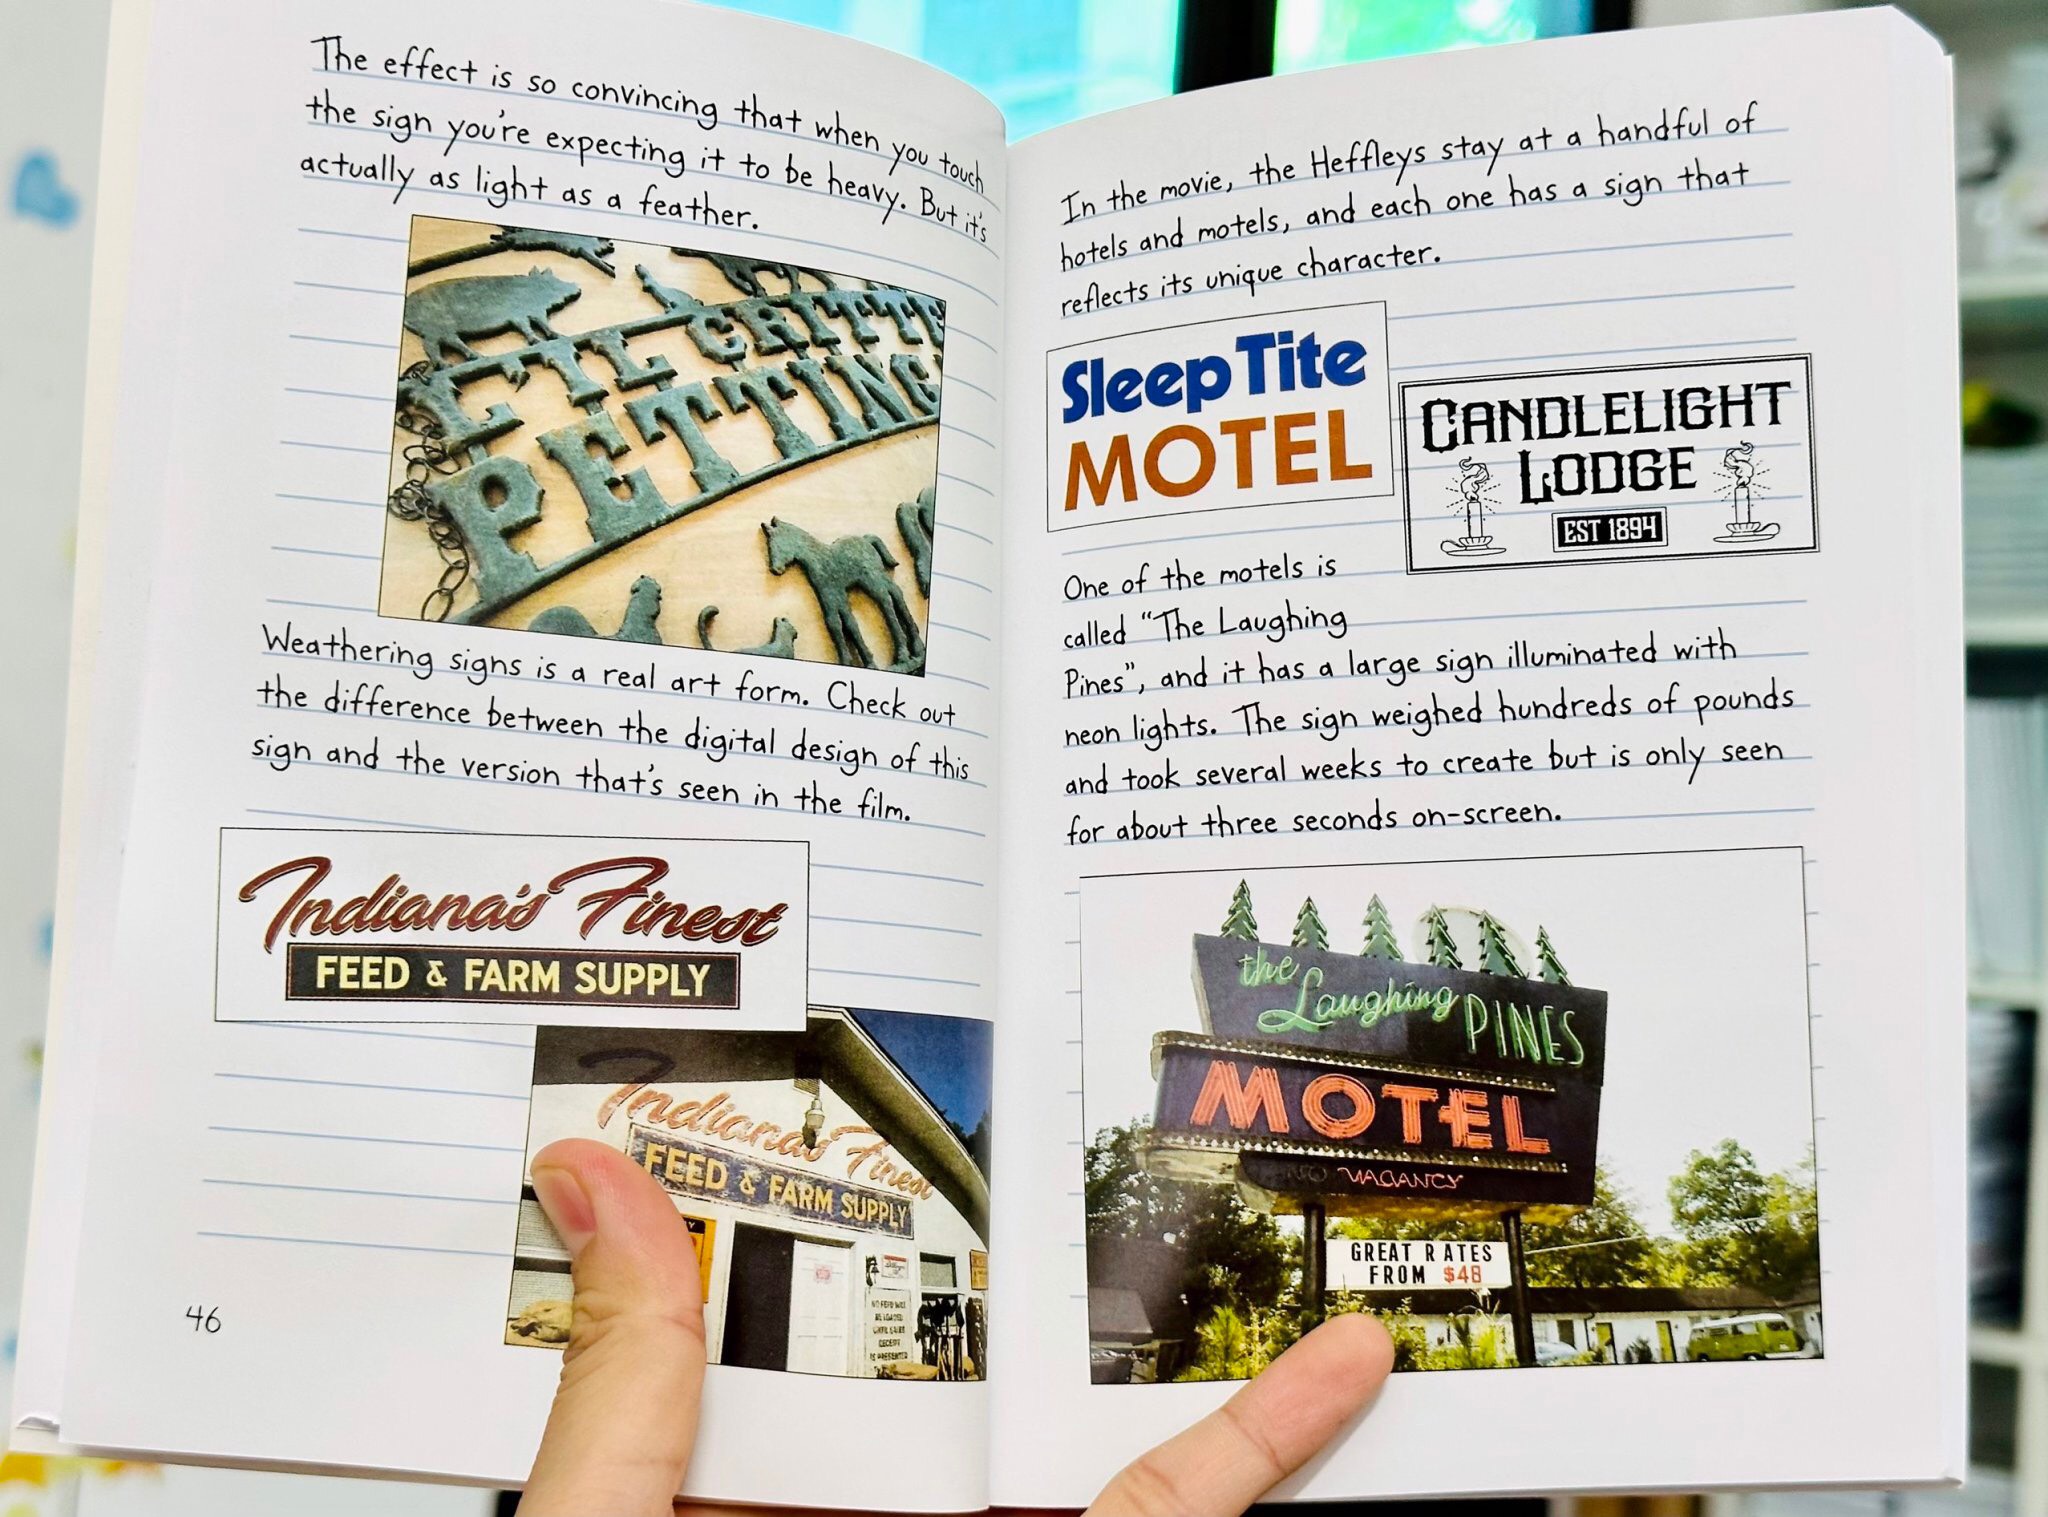 The effect is so convincing that when you touch
the sign you're expecting it to be heavy. But it's
actually as light as a feather.
L'IL CRITT
PETTING
Weathering signs is a real art form. Check out
the difference between the digital design of this
sign and the version that's seen in the film.
Indiana's Finest
FEED & FARM SUPPLY
Indiana's Finest
FEED & FARM SUPPLY
NO FEED WILL
BE LOADED
UNTIL SALES
RECEIPT
IS PRESENTED
46
In the movie, the Heffleys stay at a handful of
hotels and motels, and each one has a sign that
reflects its unique character.
SleepTite
MOTEL
CANDLELIGHT
LODGE
EST 1894
One of the motels is
called "The Laughing
Pines", and it has a large sign illuminated with
neon lights. The sign weighed hundreds of pounds
and took several weeks to create but is only seen
for about three seconds on-screen.
the Laughing PINES
MOTEL
NO VACANCY
GREAT RATES
FROM $48